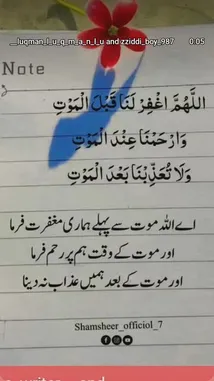 __luqman_l_u_q_m_a_n_l_u and zziddi_boy_987 0:05
Note
اللَّهُمَّ اغْفِرْ لَنَا قَبْلَ الْمَوْتِ
وَارْحَمْنَا عِنْدَ الْمَوْتِ
وَلَا تُعَذِّبْنَا بَعْدَ الْمَوْتِ
اے اللہ موت سے پہلے ہماری مغفرت فرما
اور موت کے وقت ہم پر رحم فرما
اور موت کے بعد ہمیں عذاب نہ دینا
Shamsheer_officiol_7